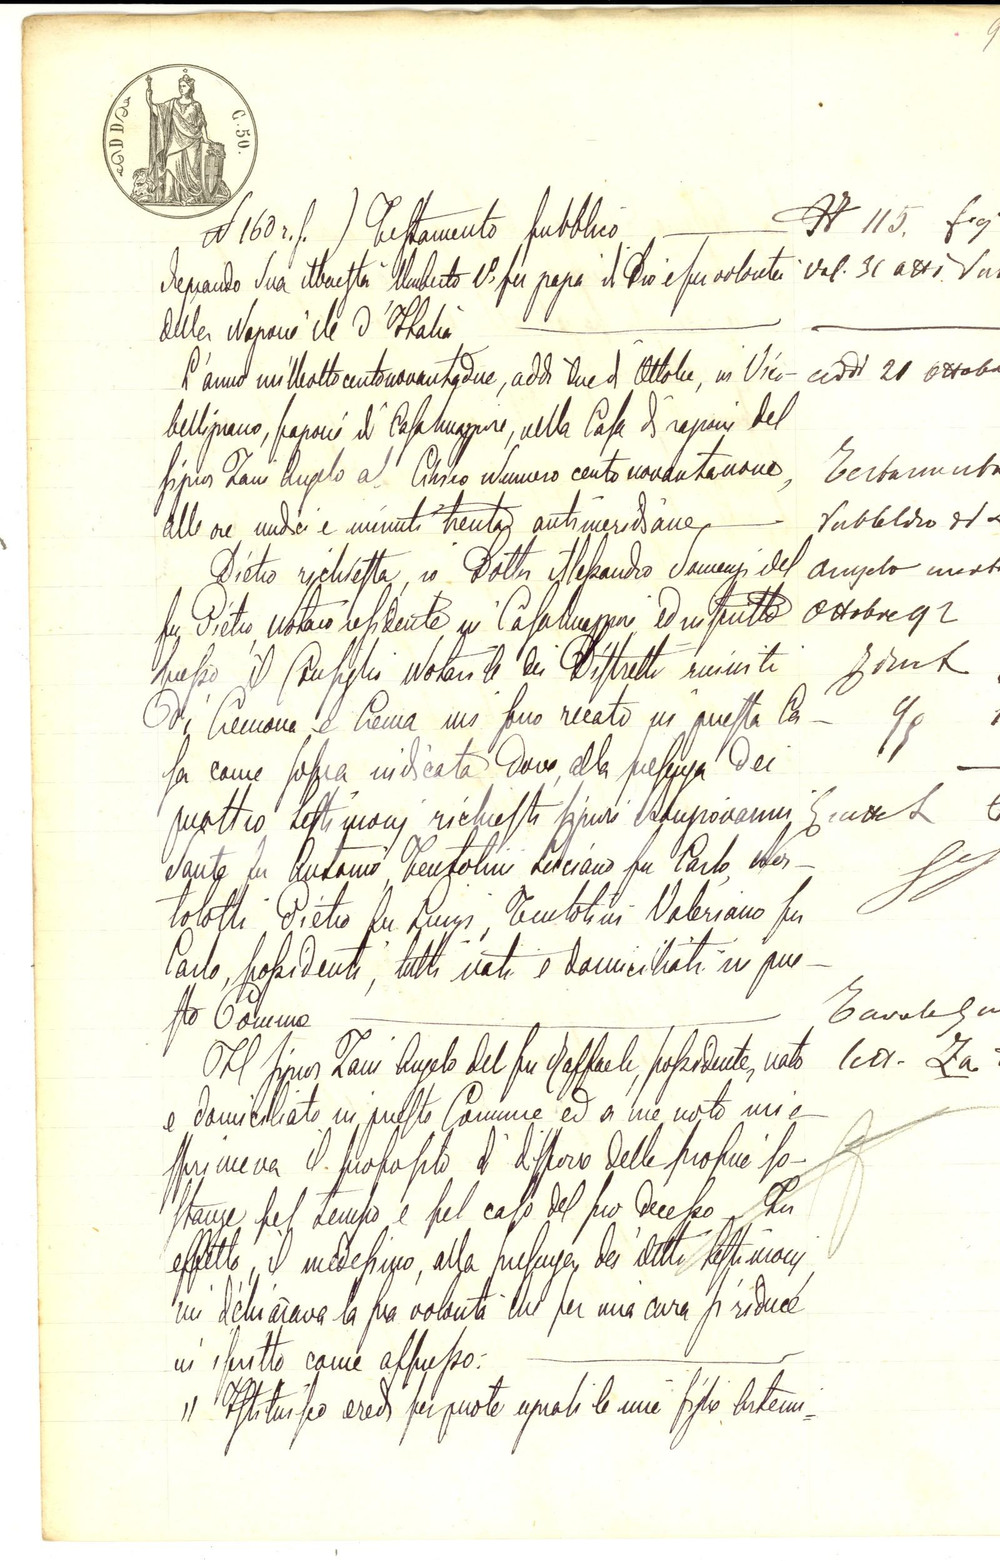 C. 50.
N 160 r.f. ) Testamento pubblico
N 115.
Regnando Sua Maestà Umberto 1° per grazia di Dio e per volontà
vol. 31 atti
della Nazione Re d'Italia
L'anno milleottocentonovantadue, addì due di Ottobre, in Vico-
addì 21 ottobre
bellignano, frazione di Casalmaggiore, nella Casa di ragione del
signor Zani Angelo al Civico Numero centonovantanove,
alle ore undici e minuti trenta antimeridiane
Dietro richiesta, io Dottor Alessandro del
Angelo
fu Pietro, notaio residente in Casalmaggiore, ed inscritto
Ottobre 92
presso il Consiglio Notarile dei Distretti riuniti
di Cremona e Crema mi sono recato in questa Ca-
sa come sopra indicata dove, alla presenza dei
quattro testimoni richiesti signori Sangiovanni
Sante fu Antonio, Tentolini Luciano fu Carlo, Ber-
tolotti Pietro fu Luigi, Tentolini Valeriano fu
Carlo, possidenti, tutti nati e domiciliati in que-
sto Comune
Il signor Zani Angelo del fu Raffaele, possidente, nato
lett. Za
e domiciliato in questo Comune ed a me noto mi e-
sprimeva il proposito di disporre delle proprie so-
stanze pel tempo e pel caso del suo decesso. In
effetto, il medesimo, alla presenza dei detti testimoni,
mi dichiarava la sua volontà che per mia cura si riduce
in iscritto come appresso:
" Istituisco eredi per quote uguali le mie figlie Artemi=